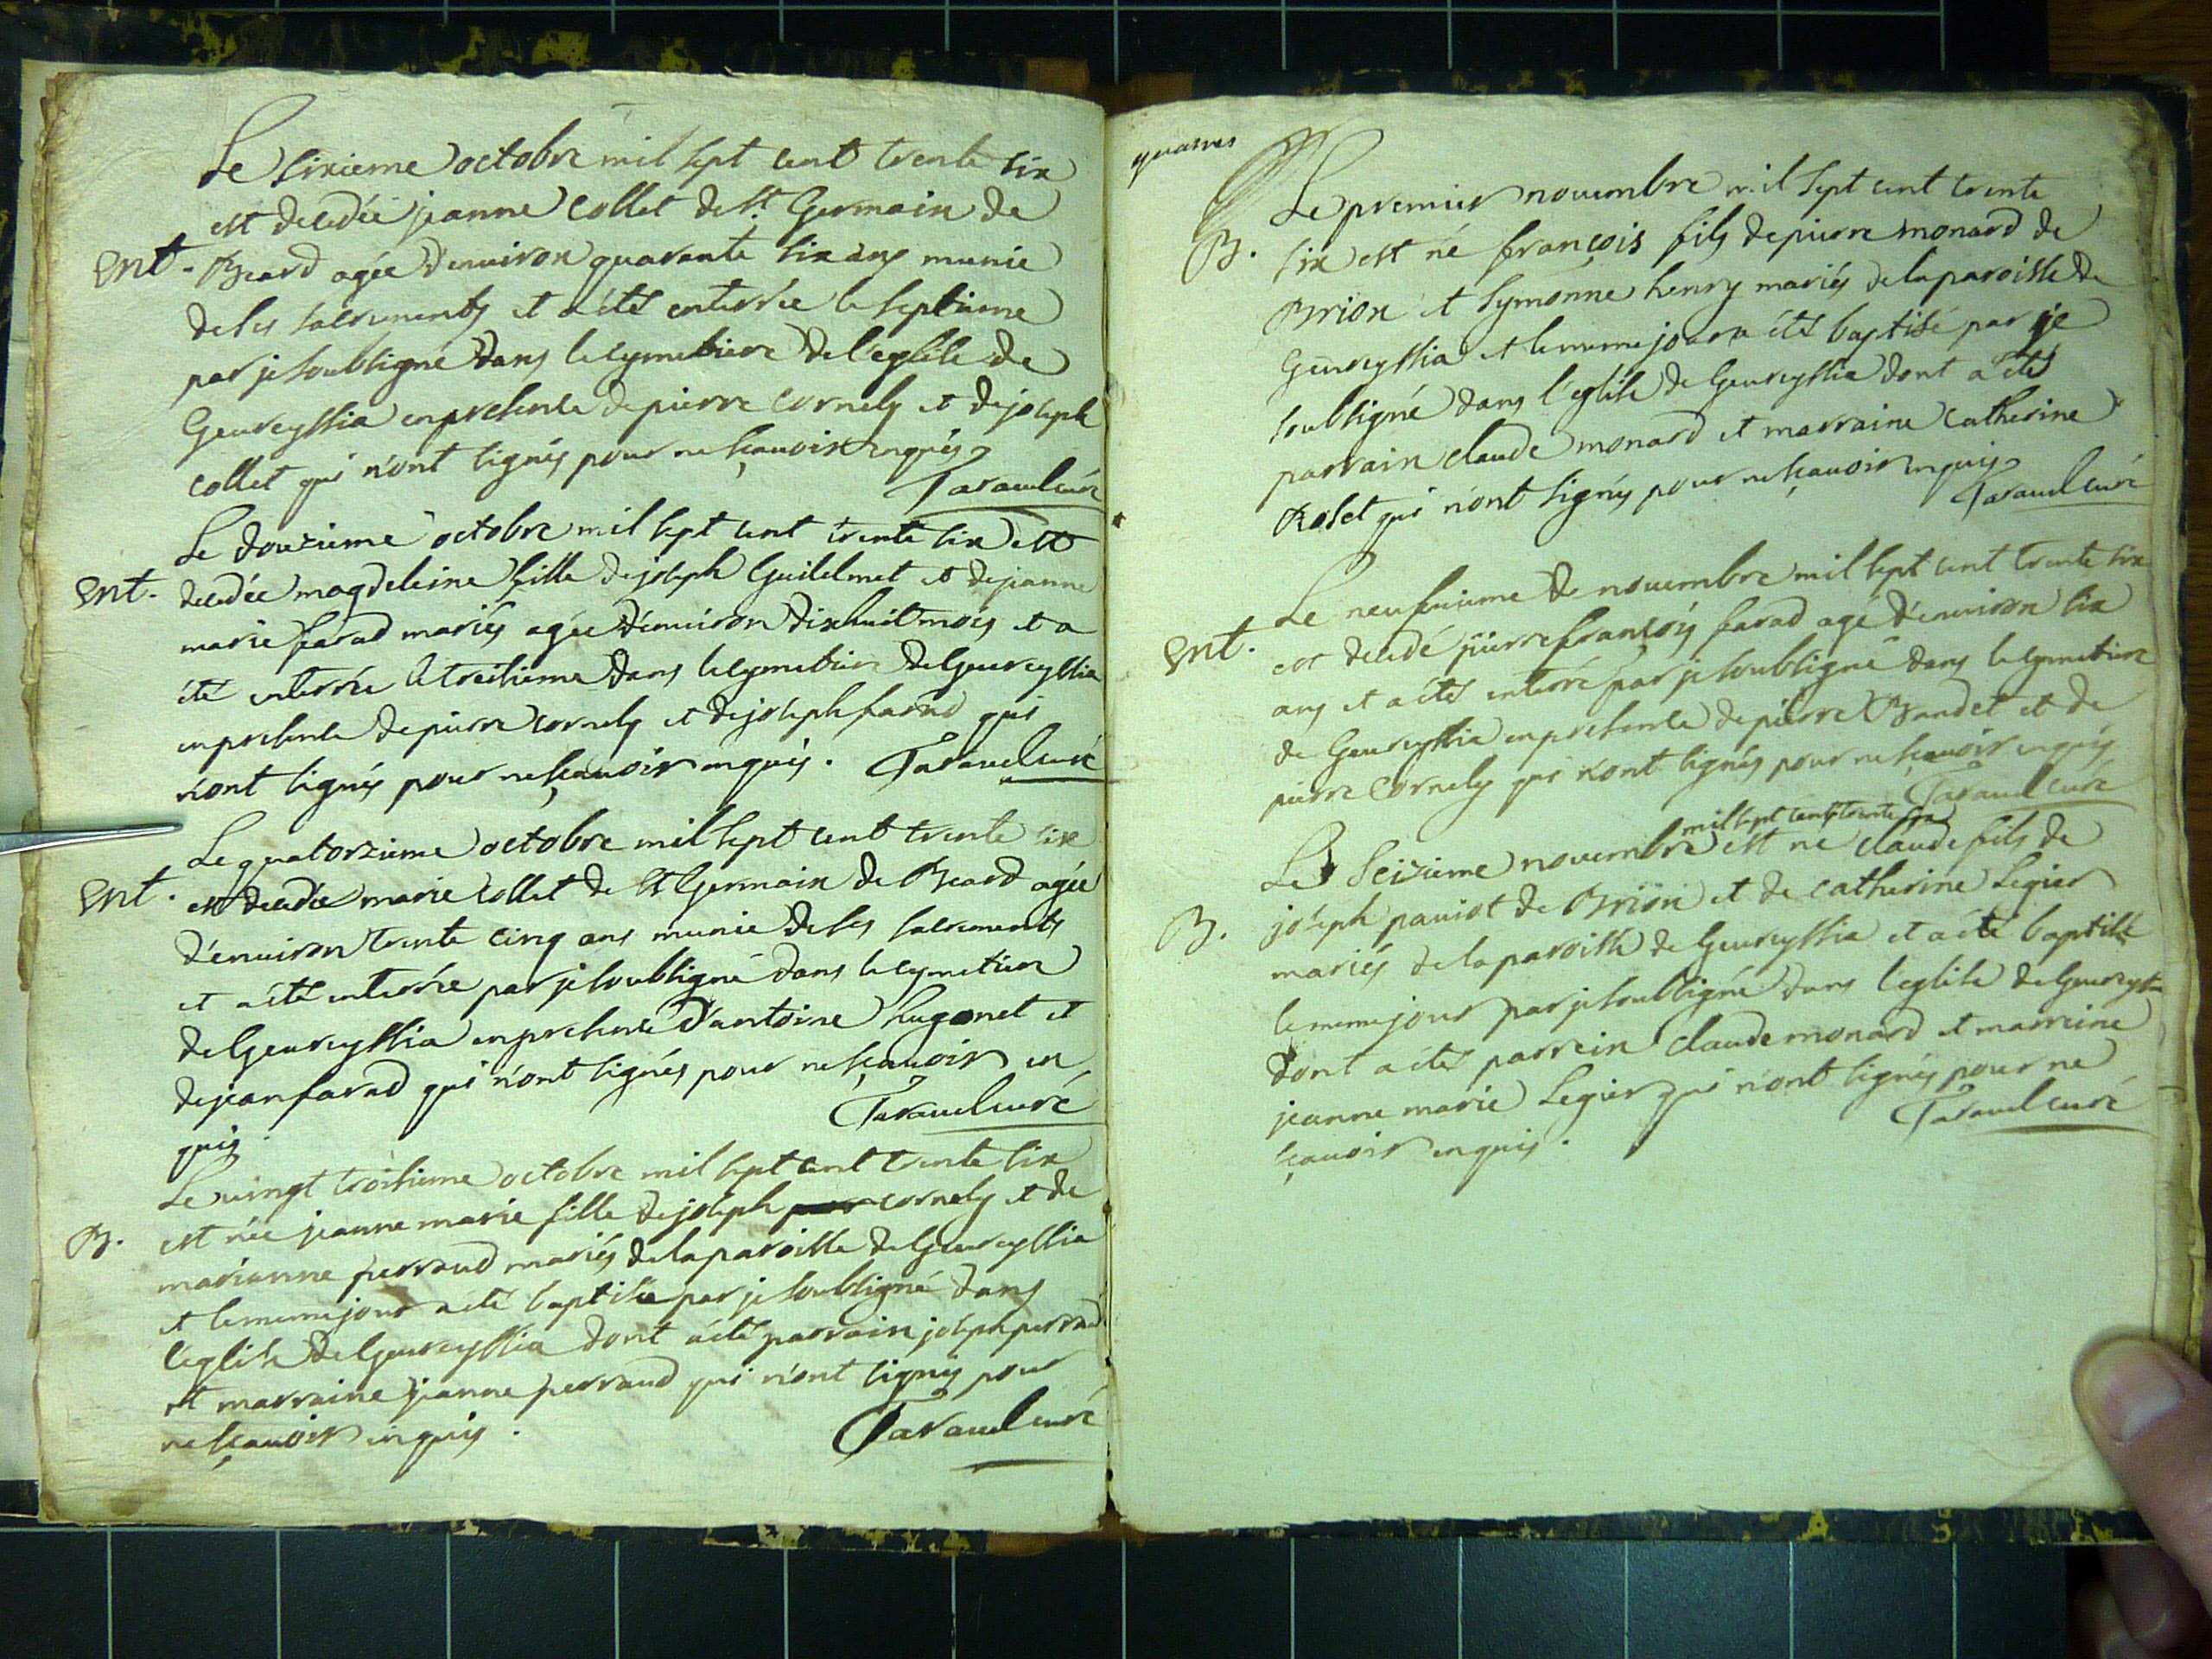 Le sixieme octobre mil sept cent trente six
est decedée jeanne Collet de St Germain de
Ent. Beard agée d'environ quarante six ans munie
de ses sacrements et a été enterrée le septieme
par je soubsigné dans le cymetiere de l'eglise de
Geureyssia en presence de pierre Cornely et de joseph
Collet qui n'ont signés pour ne sçavoir enquis
Tavaud curé
Le douzieme octobre mil sept cent trente six est
Ent. decedée magdeleine fille de joseph Guilelmet et de jeanne
marie farad mariés agée d'environ dix huit mois et a
été enterrée le treisieme dans le cymetiere de Geureyssia
en presence de pierre Cornely et de joseph farad qui
n'ont signés pour ne sçavoir enquis. Tavaud curé
Le quatorzieme octobre mil sept cent trente six
Ent. est decedée marie Collet de St Germain de Beard agée
d'environ trente cinq ans munie de ses sacrements
et a été enterrée par je soubsigné dans le cymetiere
de Geureyssia en presence d'antoine hugonet et
de jean farad qui n'ont signés pour ne sçavoir en
quis Tavaud curé
Le vingt troisieme octobre mil sept cent trente six
B. est née jeanne marie fille de joseph cornely et de
marianne perraud mariés de la paroisse de Geureyssia
et le meme jour a été baptisée par je soubsigné dans
l'eglise de Geureyssia dont a été parrain joseph perraud
et marraine jeanne perraud qui n'ont signés pour
ne sçavoir enquis. Tavaud curé
Le premier novembre mil sept cent trente
B. six est né françois fils de pierre monard de
Brion et Symonne henry mariés de la paroisse de
Geureyssia et le meme jour a été baptisé par je
soubsigné dans l'eglise de Geureyssia dont a été
parrain claude monard et marraine Catherine
Rolet qui n'ont signés pour ne sçavoir enquis
Tavaud curé
Le neufvieme de novembre mil sept cent trente six
Ent. est decedé pierre françois farad agé d'environ six
ans et a été enterré par je soubsigné dans le cymetiere
de Geureyssia en presence de pierre Bandet et de
pierre Cornely qui n'ont signés pour ne sçavoir enquis
Tavaud curé
mil sept cent trente six
Le Seizieme novembre est né claude fils de
B. joseph paviot de Brion et de catherine Legier
mariés de la paroisse de Geureyssia et a été baptisé
le meme jour par je soubsigné dans l'eglise de Geureyssia
dont a été parrein claude monard et marreine
jeanne marie Legier qui n'ont signés pour ne
sçavoir enquis. Tavaud curé